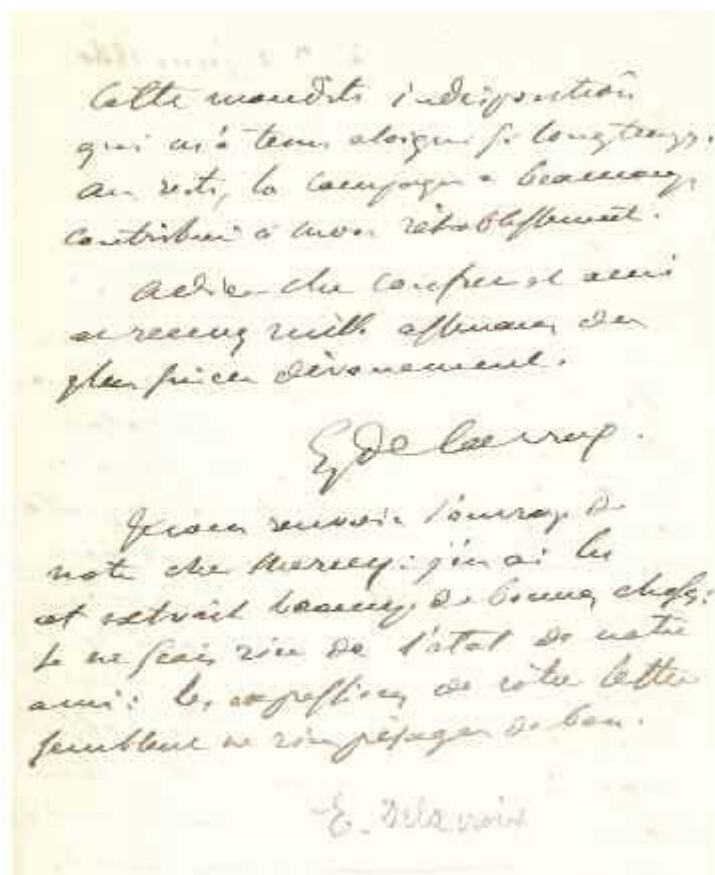 Cette maudite indisposition
qui m'a tenu eloigné si longtemps.
Au reste, la campagne a beaucoup
contribué à mon rétablissement.
Adieu cher confrere et ami
et recevez mille assurances du
plus sincere dévouement.
Eg Delacroix.
Je vous renvoie l'ouvrage de
notre cher Mercey: j'en ai lu
et extrait beaucoup de bonnes choses:
Je ne sais rien de l'état de notre
ami: les expressions de votre lettre
semblent ne rien présager de bon.
E. Delacroix